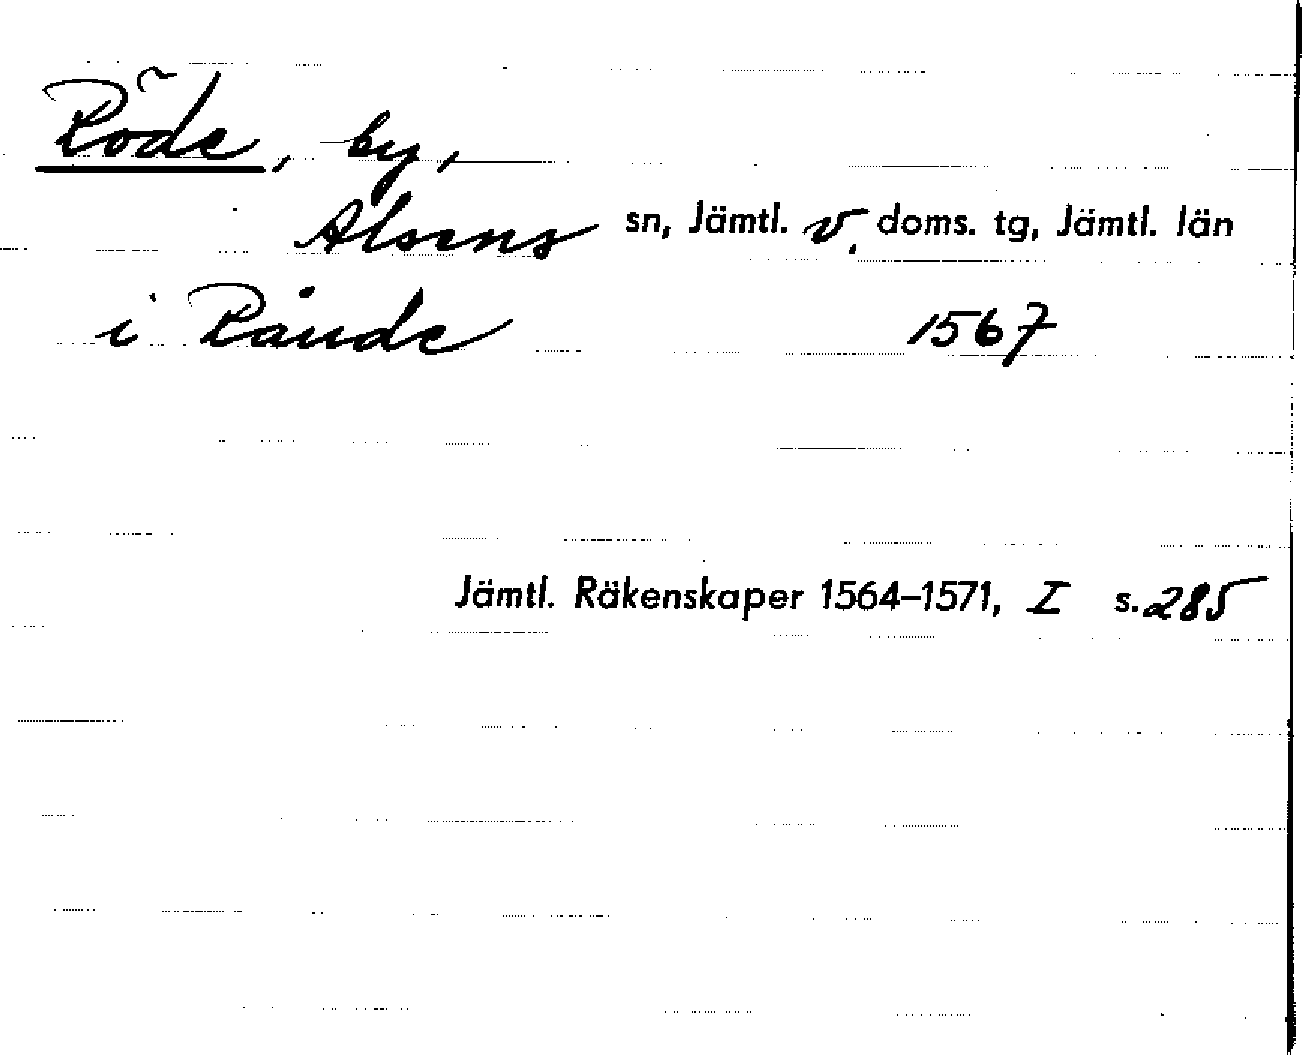 Röde, by,
Alsens sn, Jämtl. v. doms. tg, Jämtl. län
i Råude 1567
Jämtl. Räkenskaper 1564–1571, I s. 285